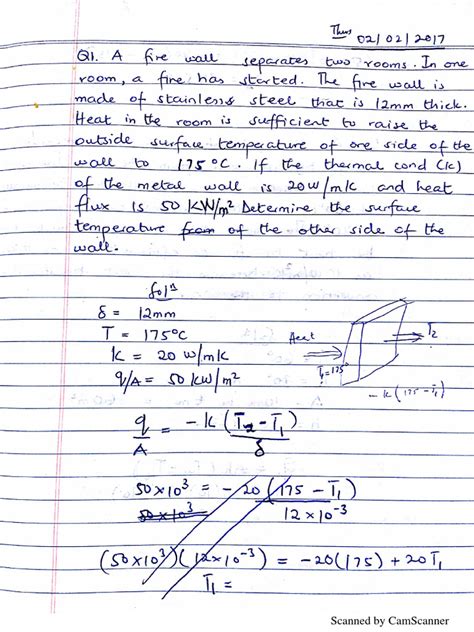 Thurs 02/02/2017
Q1. A fire wall separates two rooms. In one
room, a fire has started. The fire wall is
made of stainless steel that is 12mm thick.
Heat in the room is sufficient to raise the
outside surface temperature of one side of the
wall to 175°C. If the thermal cond (k)
of the metal wall is 20w/mk and heat
flux is 50 KW/m² Determine the surface
temperature from of the other side of the
wall.
Sol^n
δ = 12mm
T = 175°C
K = 20 w/mk
q/A = 50 kw/m²
Heat
T₁=175°
T₂
-k(175-T₁)
q/A = -k(T₂-T₁)/δ
50×10³ = -20(175-T₁)/12×10⁻³
50×10³
(50×10³)(12×10⁻³) = -20(175) + 20T₁
T₁ =
Scanned by CamScanner